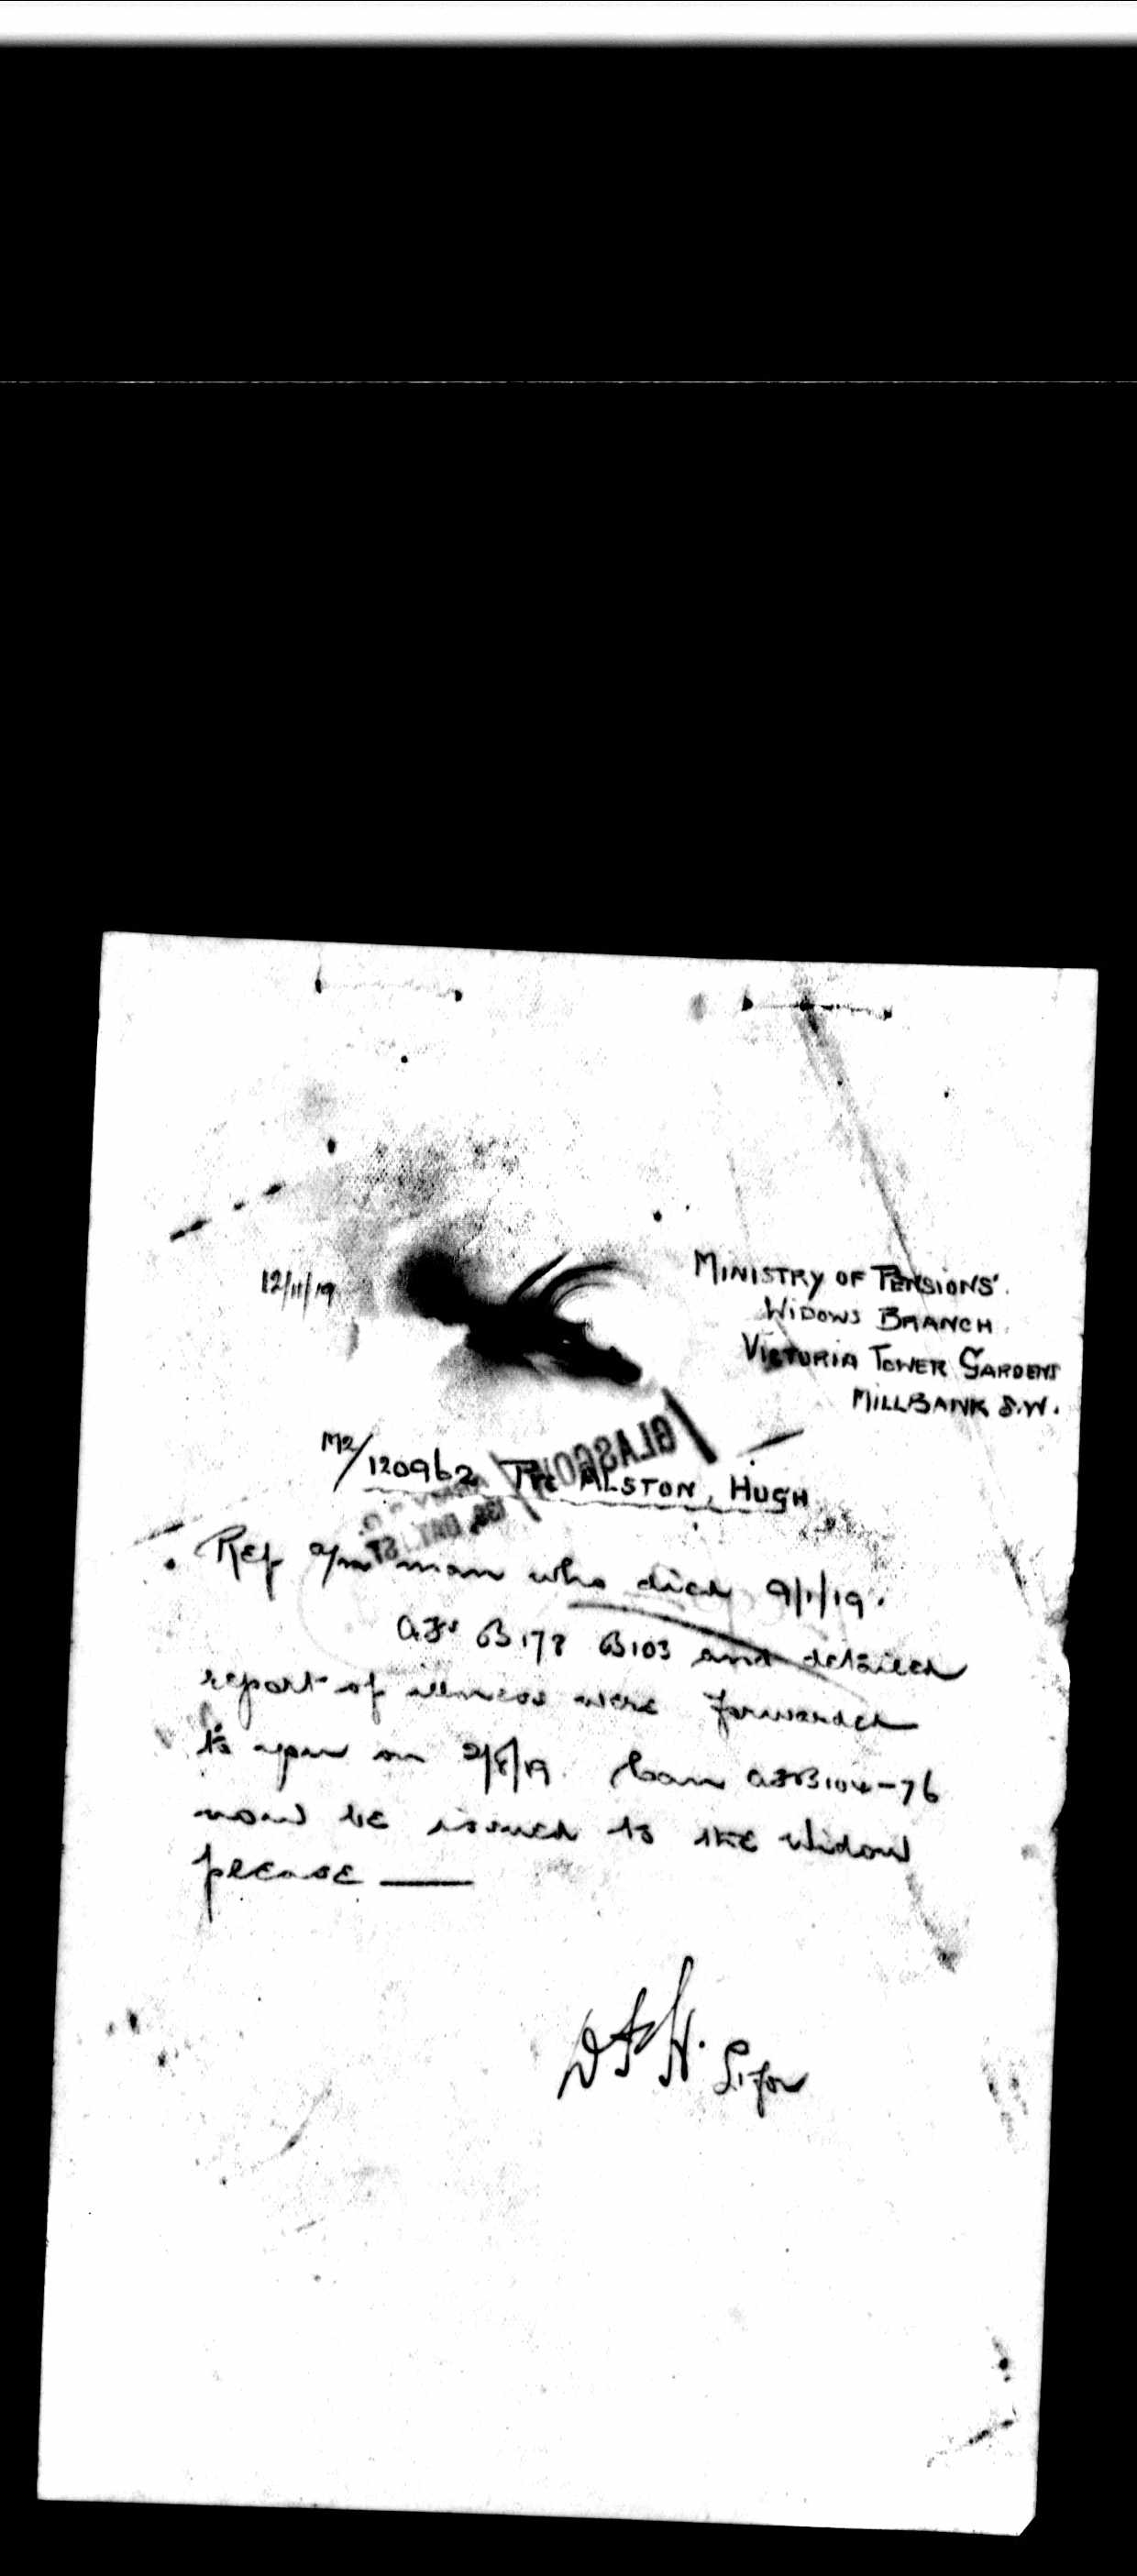 12/11/19
MINISTRY OF PENSIONS.
WIDOWS BRANCH
VICTORIA TOWER GARDENS
MILLBANK S.W.
M2/120962 Pte ALSTON, HUGH
GLASGOW
Ref a/m man who died 9/1/19.
AFs B178 B103 and detailed
report of illness were forwarded
to you on 2/8/19. Can AFB104-76
now be issued to the widow
please —